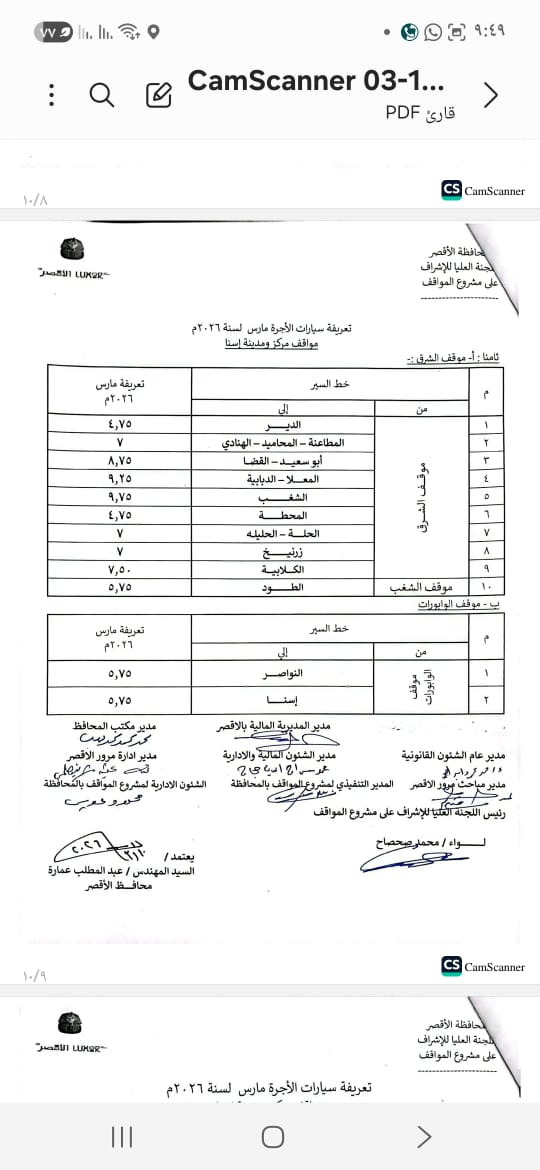 ٧٧
٩:٤٩
CamScanner 03-1...
قارئ PDF
CS CamScanner
١٠/٨
محافظة الأقصر
اللجنة العليا للإشراف
على مشروع المواقف
LUXOR الأقصر
تعريفة سيارات الأجرة مارس لسنة ٢٠٢٦م
مواقف مركز ومدينة إسنا
ثامنا : أ- موقف الشرق :-
م خط السير تعريفة مارس ٢٠٢٦م
من إلى
موقف الشرق
١ الديـــر ٤,٧٥
٢ المطاعنة – المحاميد – الهنادي ٧
٣ أبو سعيـد – القضا ٨,٧٥
٤ المعـــلا – الدبابية ٩,٢٥
٥ الشغـــب ٩,٧٥
٦ المحطـــة ٤,٧٥
٧ الحلـــة – الحليله ٧
٨ زرنيـــخ ٧
٩ الكـلابيـة ٧,٥٠
١٠ موقف الشغب الطـــود ٥,٧٥
ب - موقف الوابورات
م خط السير تعريفة مارس ٢٠٢٦م
من إلى
موقف الوابورات
١ النواصـر ٥,٧٥
٢ إسنـــا ٥,٧٥
مدير المديرية المالية بالاقصر مدير مكتب المحافظ
مدير عام الشئون القانونية مدير الشئون المالية والادارية مدير ادارة مرور الاقصر
مدير مباحث مرور الاقصر المدير التنفيذي لمشروع المواقف بالمحافظة الشئون الادارية لمشروع المواقف بالمحافظة
رئيس اللجنة العليا للإشراف على مشروع المواقف
لـــواء / محمد صحصاح
يعتمد /
السيد المهندس / عبد المطلب عمارة
محافـــظ الأقصر
CS CamScanner
١٠/٩
محافظة الأقصر
اللجنة العليا للإشراف
على مشروع المواقف
LUXOR الأقصر
تعريفة سيارات الأجرة مارس لسنة ٢٠٢٦م